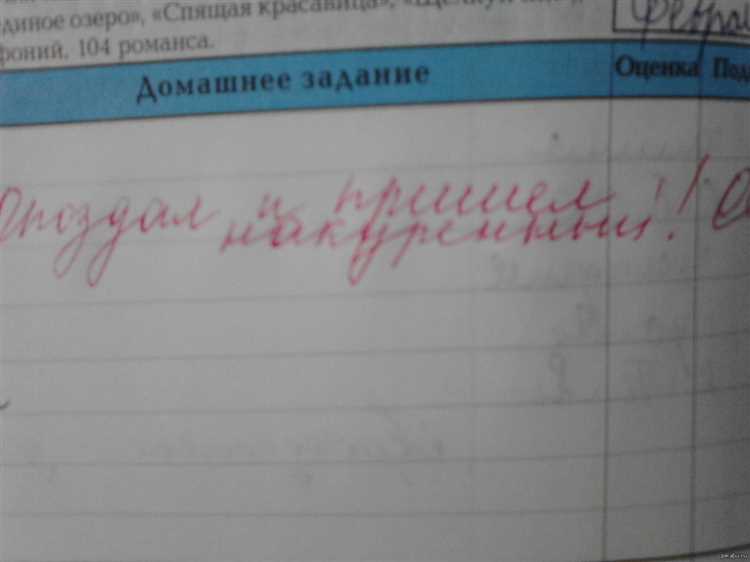 единое озеро», «Спящая красавица», «Щелкунчик»,
фоний, 104 романса.
Февра
Домашнее задание Оценка Под
Опоздал и пришел
накуренный!!